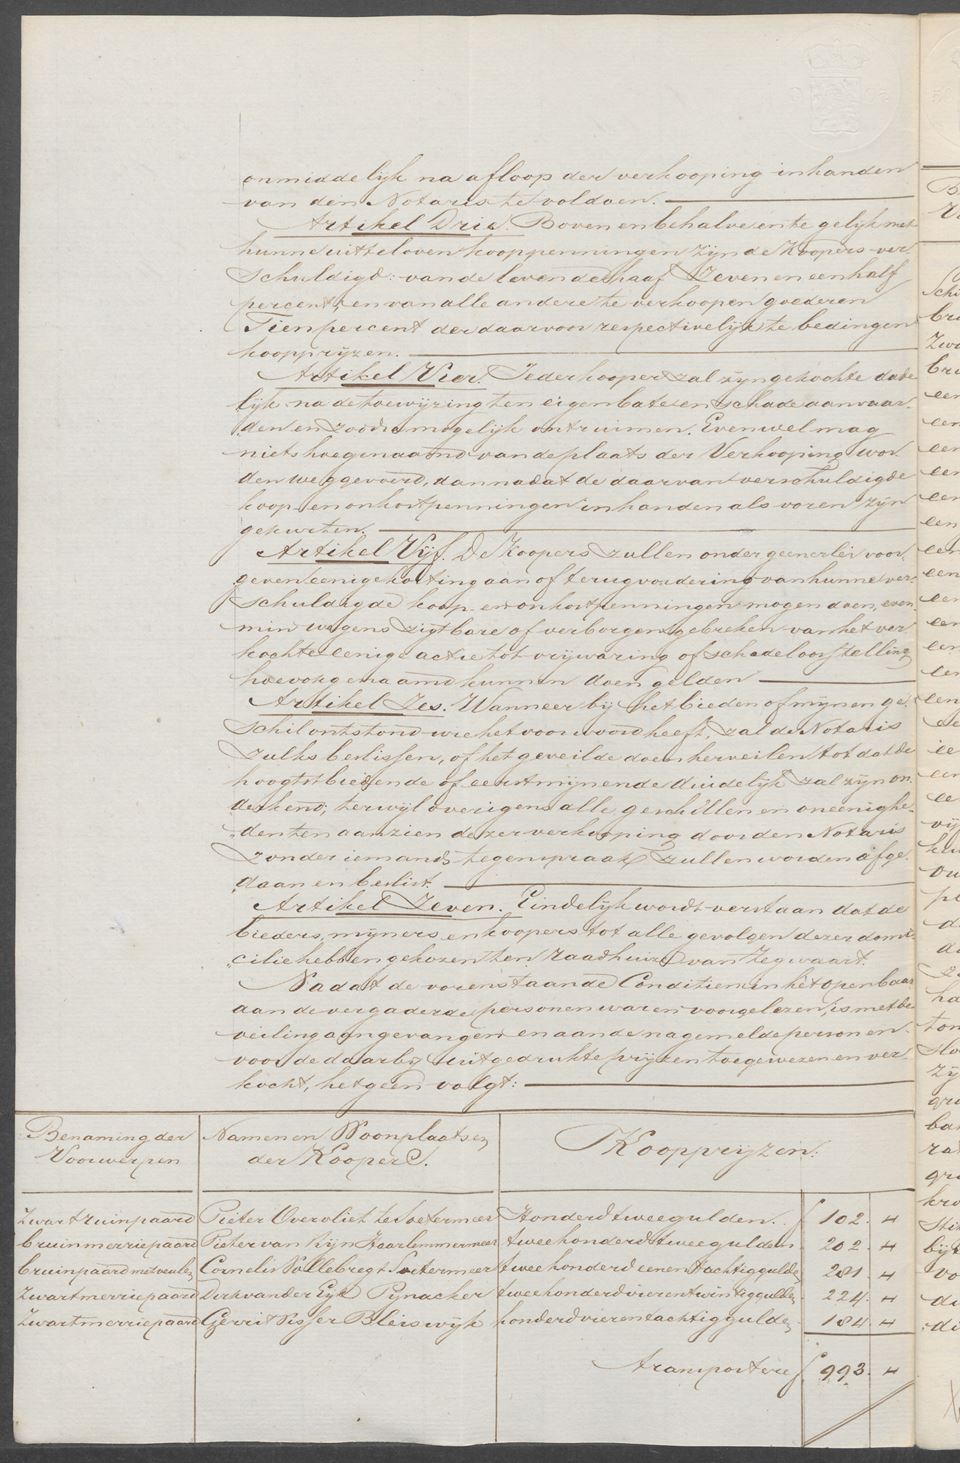 onmiddelijk na afloop der verkooping in handen
van den Notaris te voldoen.
Artikel Drie. Boven en behalve en te gelijk met
hunne uitteloven kooppenningen zijn de Koopers ver
schuldigd: van de levende haaf Zeven en een half
percent, en van alle andere te verkoopen goederen
Tien percent der daarvoor respectivelijk te bedingen
koopprijzen.
Artikel Vier. Ieder kooper zal zijn gekochte dade
lijk na de toewijzing ten eigen bate en schade aanvaar
den en zoodra mogelijk ontruimen. Evenwel mag
niets hoegenaamd van de plaats der Verkooping wor
den weggevoerd, dan nadat de daarvan verschuldigde
koop- en onkostpenningen in handen als voren zijn
gekweten.
Artikel Vijf. De Koopers zullen onder geenerlei voor
geven eenige korting aan of terugvordering van hunne ver
schuldigde koop- en onkostpenningen mogen doen, even
min wegens zigtbare of verborgen gebreken van het ver
kochte eenige actie tot vrijwaring of schadeloosstelling
hoe ook genaamd kunnen doen gelden
Artikel Zes. Wanneer bij het bieden of mijnen ge
schil ontstond wie het voorwoord heeft, zal de Notaris
zulks beslissen, of het geveilde doen herveilen tot dat de
hoogstbiedende of eerstmijnende duidelijk zal zijn on
derkend, terwijl overigens alle geschillen en oneenighe
den ten aanzien dezer verkooping door den Notaris
zonder iemands tegenspraak zullen worden afge
daan en beslist.
Artikel Zeven. Eindelijk wordt verstaan dat de
bieders, mijners en koopers tot alle gevolgen dezer domi
cilie hebben gekozen ten Raadhuize van Zegwaart.
Nadat de vorenstaande Conditien in het openbaar
aan de vergaderde personen waren voorgelezen, is met de
veiling aangevangen en aan de nagemelde personen
voor de daarbij uitgedrukte prijzen toegewezen en ver
kocht, hetgeen volgt:
Benaming der Voorwerpen Namen en Woonplaatsen der Koopers. Koopprijzen:
Zwart ruinpaard Pieter Overvliet te Soetermeer Honderd twee gulden. f 102. "
bruin merriepaard Pieter van Rijn Haarlemmermeer tweehonderd twee gulden 202. "
bruin paard met veulen Cornelis Sollebregt Soetermeer twee honderd een en tachtig gulden 281. "
Zwart merriepaard Dirk van der Eyk Pynacker tweehonderd vier en twintig gulden 224. "
Zwart merriepaard Gerrit Visser Bleiswijk honderd vier en tachtig gulden 184. "
transportere f 993. "